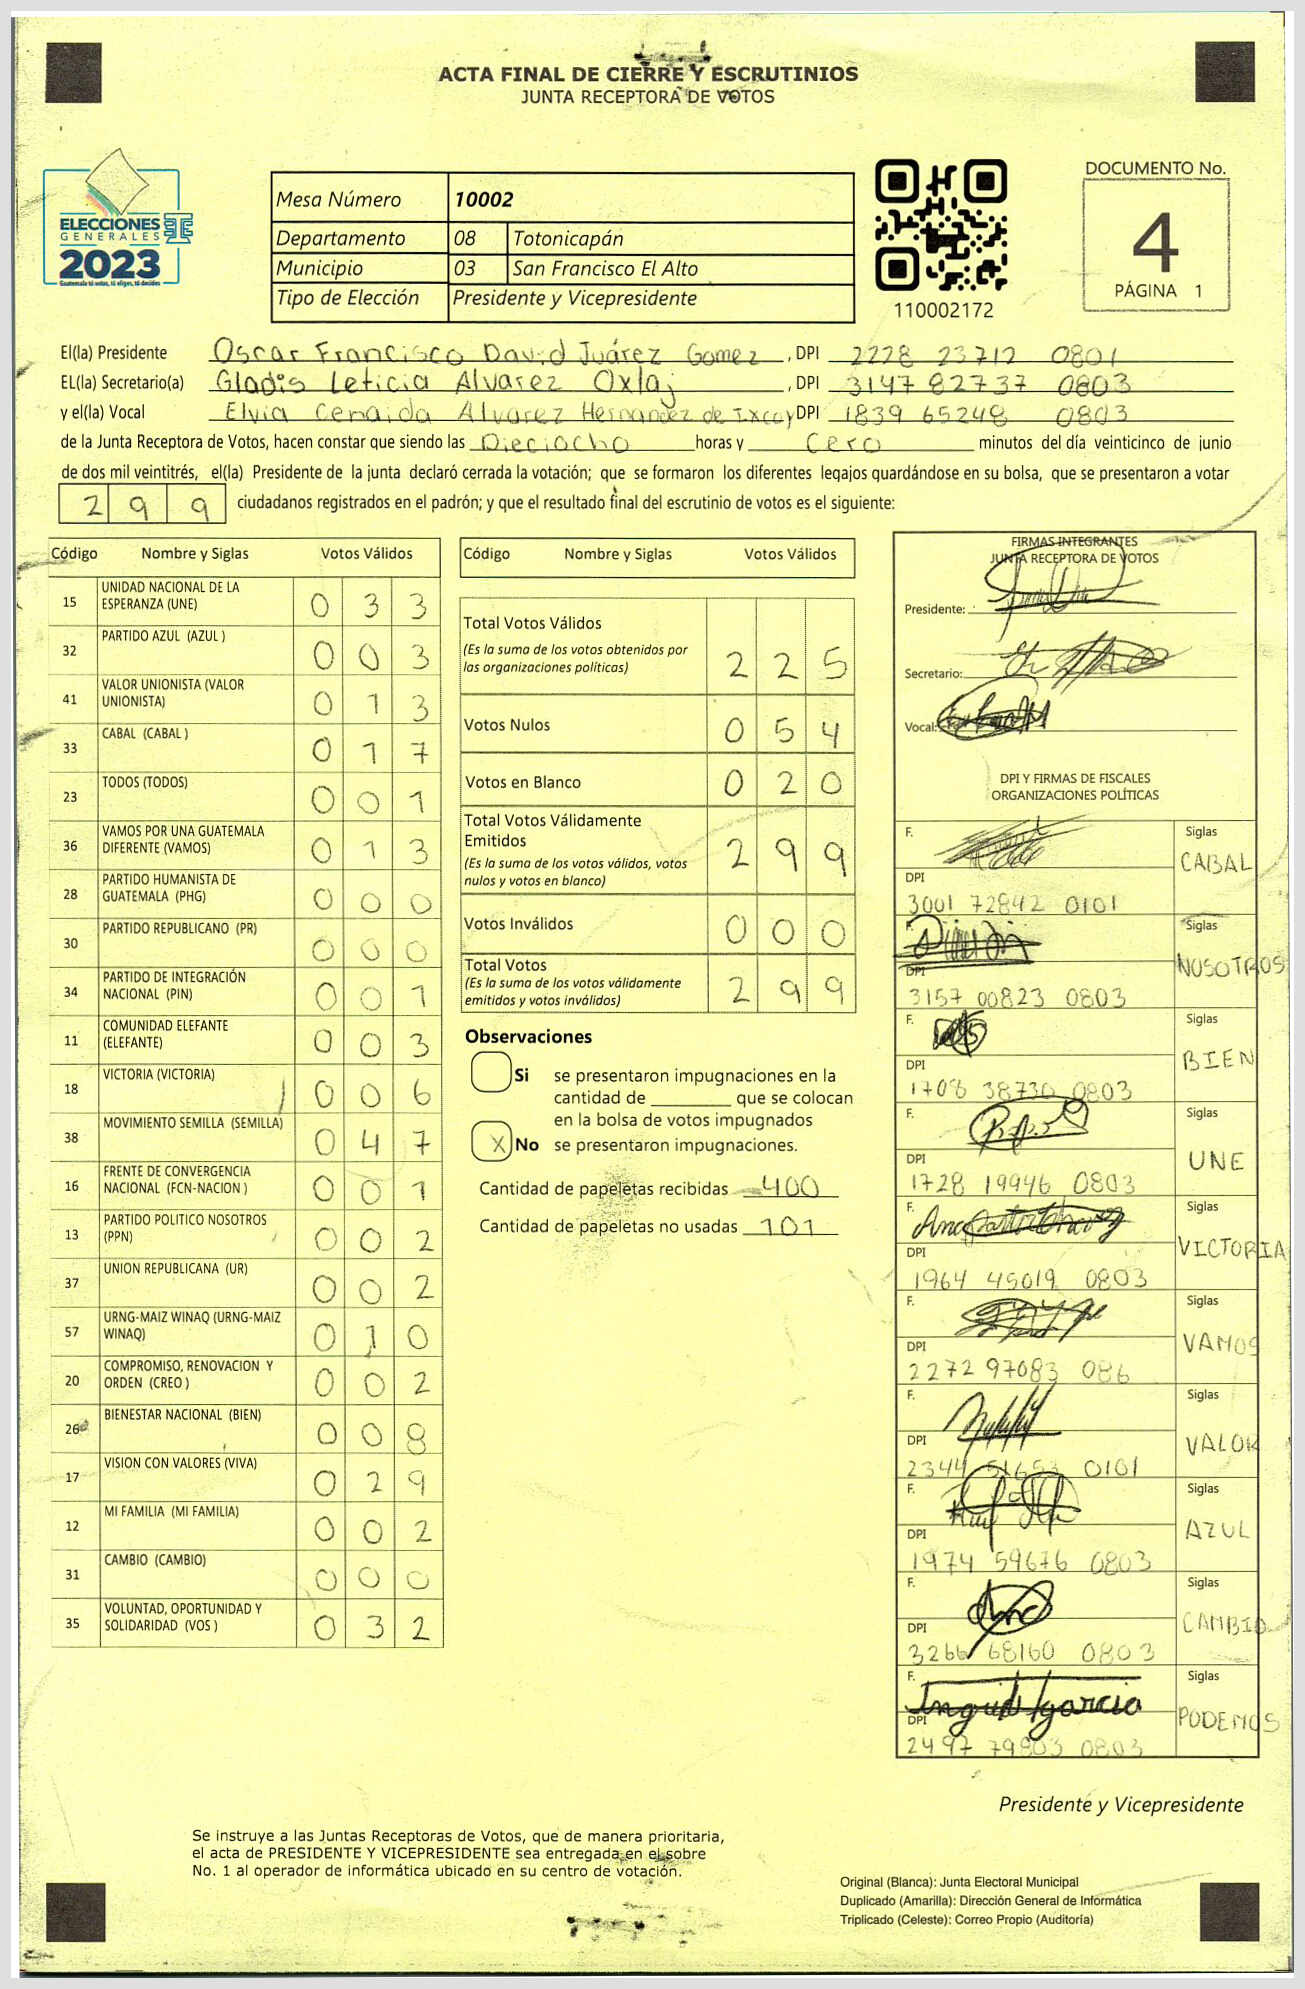 ACTA FINAL DE CIERRE Y ESCRUTINIOS
JUNTA RECEPTORA DE VOTOS
ELECCIONES
GENERALES
2023
Guatemala tú votas, tú eliges, tú decides
Mesa Número 10002
Departamento 08 Totonicapán
Municipio 03 San Francisco El Alto
Tipo de Elección Presidente y Vicepresidente
110002172
DOCUMENTO No.
4
PÁGINA 1
El(la) Presidente Oscar Francisco David Juárez Gomez, DPI 2228 23712 0801
EL(la) Secretario(a) Gladis Leticia Alvarez Oxlaj, DPI 3147 82737 0803
y el(la) Vocal Elvia Cenaida Alvarez Hernandez de Ixcoy DPI 1839 65248 0803
de la Junta Receptora de Votos, hacen constar que siendo las Dieciocho horas y Cero minutos del día veinticinco de junio
de dos mil veintitrés, el(la) Presidente de la junta declaró cerrada la votación; que se formaron los diferentes legajos guardándose en su bolsa, que se presentaron a votar
299 ciudadanos registrados en el padrón; y que el resultado final del escrutinio de votos es el siguiente:
Código Nombre y Siglas Votos Válidos
15 UNIDAD NACIONAL DE LA
ESPERANZA (UNE) 0 3 3
32 PARTIDO AZUL (AZUL ) 0 0 3
41 VALOR UNIONISTA (VALOR
UNIONISTA) 0 1 3
33 CABAL (CABAL ) 0 1 7
23 TODOS (TODOS) 0 0 1
36 VAMOS POR UNA GUATEMALA
DIFERENTE (VAMOS) 0 1 3
28 PARTIDO HUMANISTA DE
GUATEMALA (PHG) 0 0 0
30 PARTIDO REPUBLICANO (PR) 0 0 0
34 PARTIDO DE INTEGRACIÓN
NACIONAL (PIN) 0 0 1
11 COMUNIDAD ELEFANTE
(ELEFANTE) 0 0 3
18 VICTORIA (VICTORIA) 0 0 6
38 MOVIMIENTO SEMILLA (SEMILLA) 0 4 7
16 FRENTE DE CONVERGENCIA
NACIONAL (FCN-NACION ) 0 0 1
13 PARTIDO POLITICO NOSOTROS
(PPN) 0 0 2
37 UNION REPUBLICANA (UR) 0 0 2
57 URNG-MAIZ WINAQ (URNG-MAIZ
WINAQ) 0 1 0
20 COMPROMISO, RENOVACION Y
ORDEN (CREO ) 0 0 2
26 BIENESTAR NACIONAL (BIEN) 0 0 8
17 VISION CON VALORES (VIVA) 0 2 9
12 MI FAMILIA (MI FAMILIA) 0 0 2
31 CAMBIO (CAMBIO) 0 0 0
35 VOLUNTAD, OPORTUNIDAD Y
SOLIDARIDAD (VOS ) 0 3 2
Código Nombre y Siglas Votos Válidos
Total Votos Válidos
(Es la suma de los votos obtenidos por
las organizaciones políticas) 2 2 5
Votos Nulos 0 5 4
Votos en Blanco 0 2 0
Total Votos Válidamente
Emitidos
(Es la suma de los votos válidos, votos
nulos y votos en blanco) 2 9 9
Votos Inválidos 0 0 0
Total Votos
(Es la suma de los votos válidamente
emitidos y votos inválidos) 2 9 9
Observaciones
Si se presentaron impugnaciones en la
cantidad de ________ que se colocan
en la bolsa de votos impugnados
X No se presentaron impugnaciones.
Cantidad de papeletas recibidas 400
Cantidad de papeletas no usadas 101
FIRMAS INTEGRANTES
JUNTA RECEPTORA DE VOTOS
Presidente:
Secretario:
Vocal:
DPI Y FIRMAS DE FISCALES
ORGANIZACIONES POLÍTICAS
F. Siglas
CABAL
DPI
3001 72842 0101
F. Siglas
NOSOTROS
DPI
3157 00823 0803
F. Siglas
BIEN
DPI
1708 38730 0803
F. Siglas
UNE
DPI
1728 19946 0803
F. Siglas
VICTORIA
DPI
1964 45019 0803
F. Siglas
VAMOS
DPI
2272 97083 086
F. Siglas
VALOR
DPI
2344 51653 0101
F. Siglas
AZUL
DPI
1974 59676 0803
F. Siglas
CAMBIO
DPI
3266 68160 0803
F. Ingrid garcia Siglas
PODEMOS
DPI
2497 79803 0803
Presidente y Vicepresidente
Se instruye a las Juntas Receptoras de Votos, que de manera prioritaria,
el acta de PRESIDENTE Y VICEPRESIDENTE sea entregada en el sobre
No. 1 al operador de informática ubicado en su centro de votación.
Original (Blanca): Junta Electoral Municipal
Duplicado (Amarilla): Dirección General de Informática
Triplicado (Celeste): Correo Propio (Auditoría)